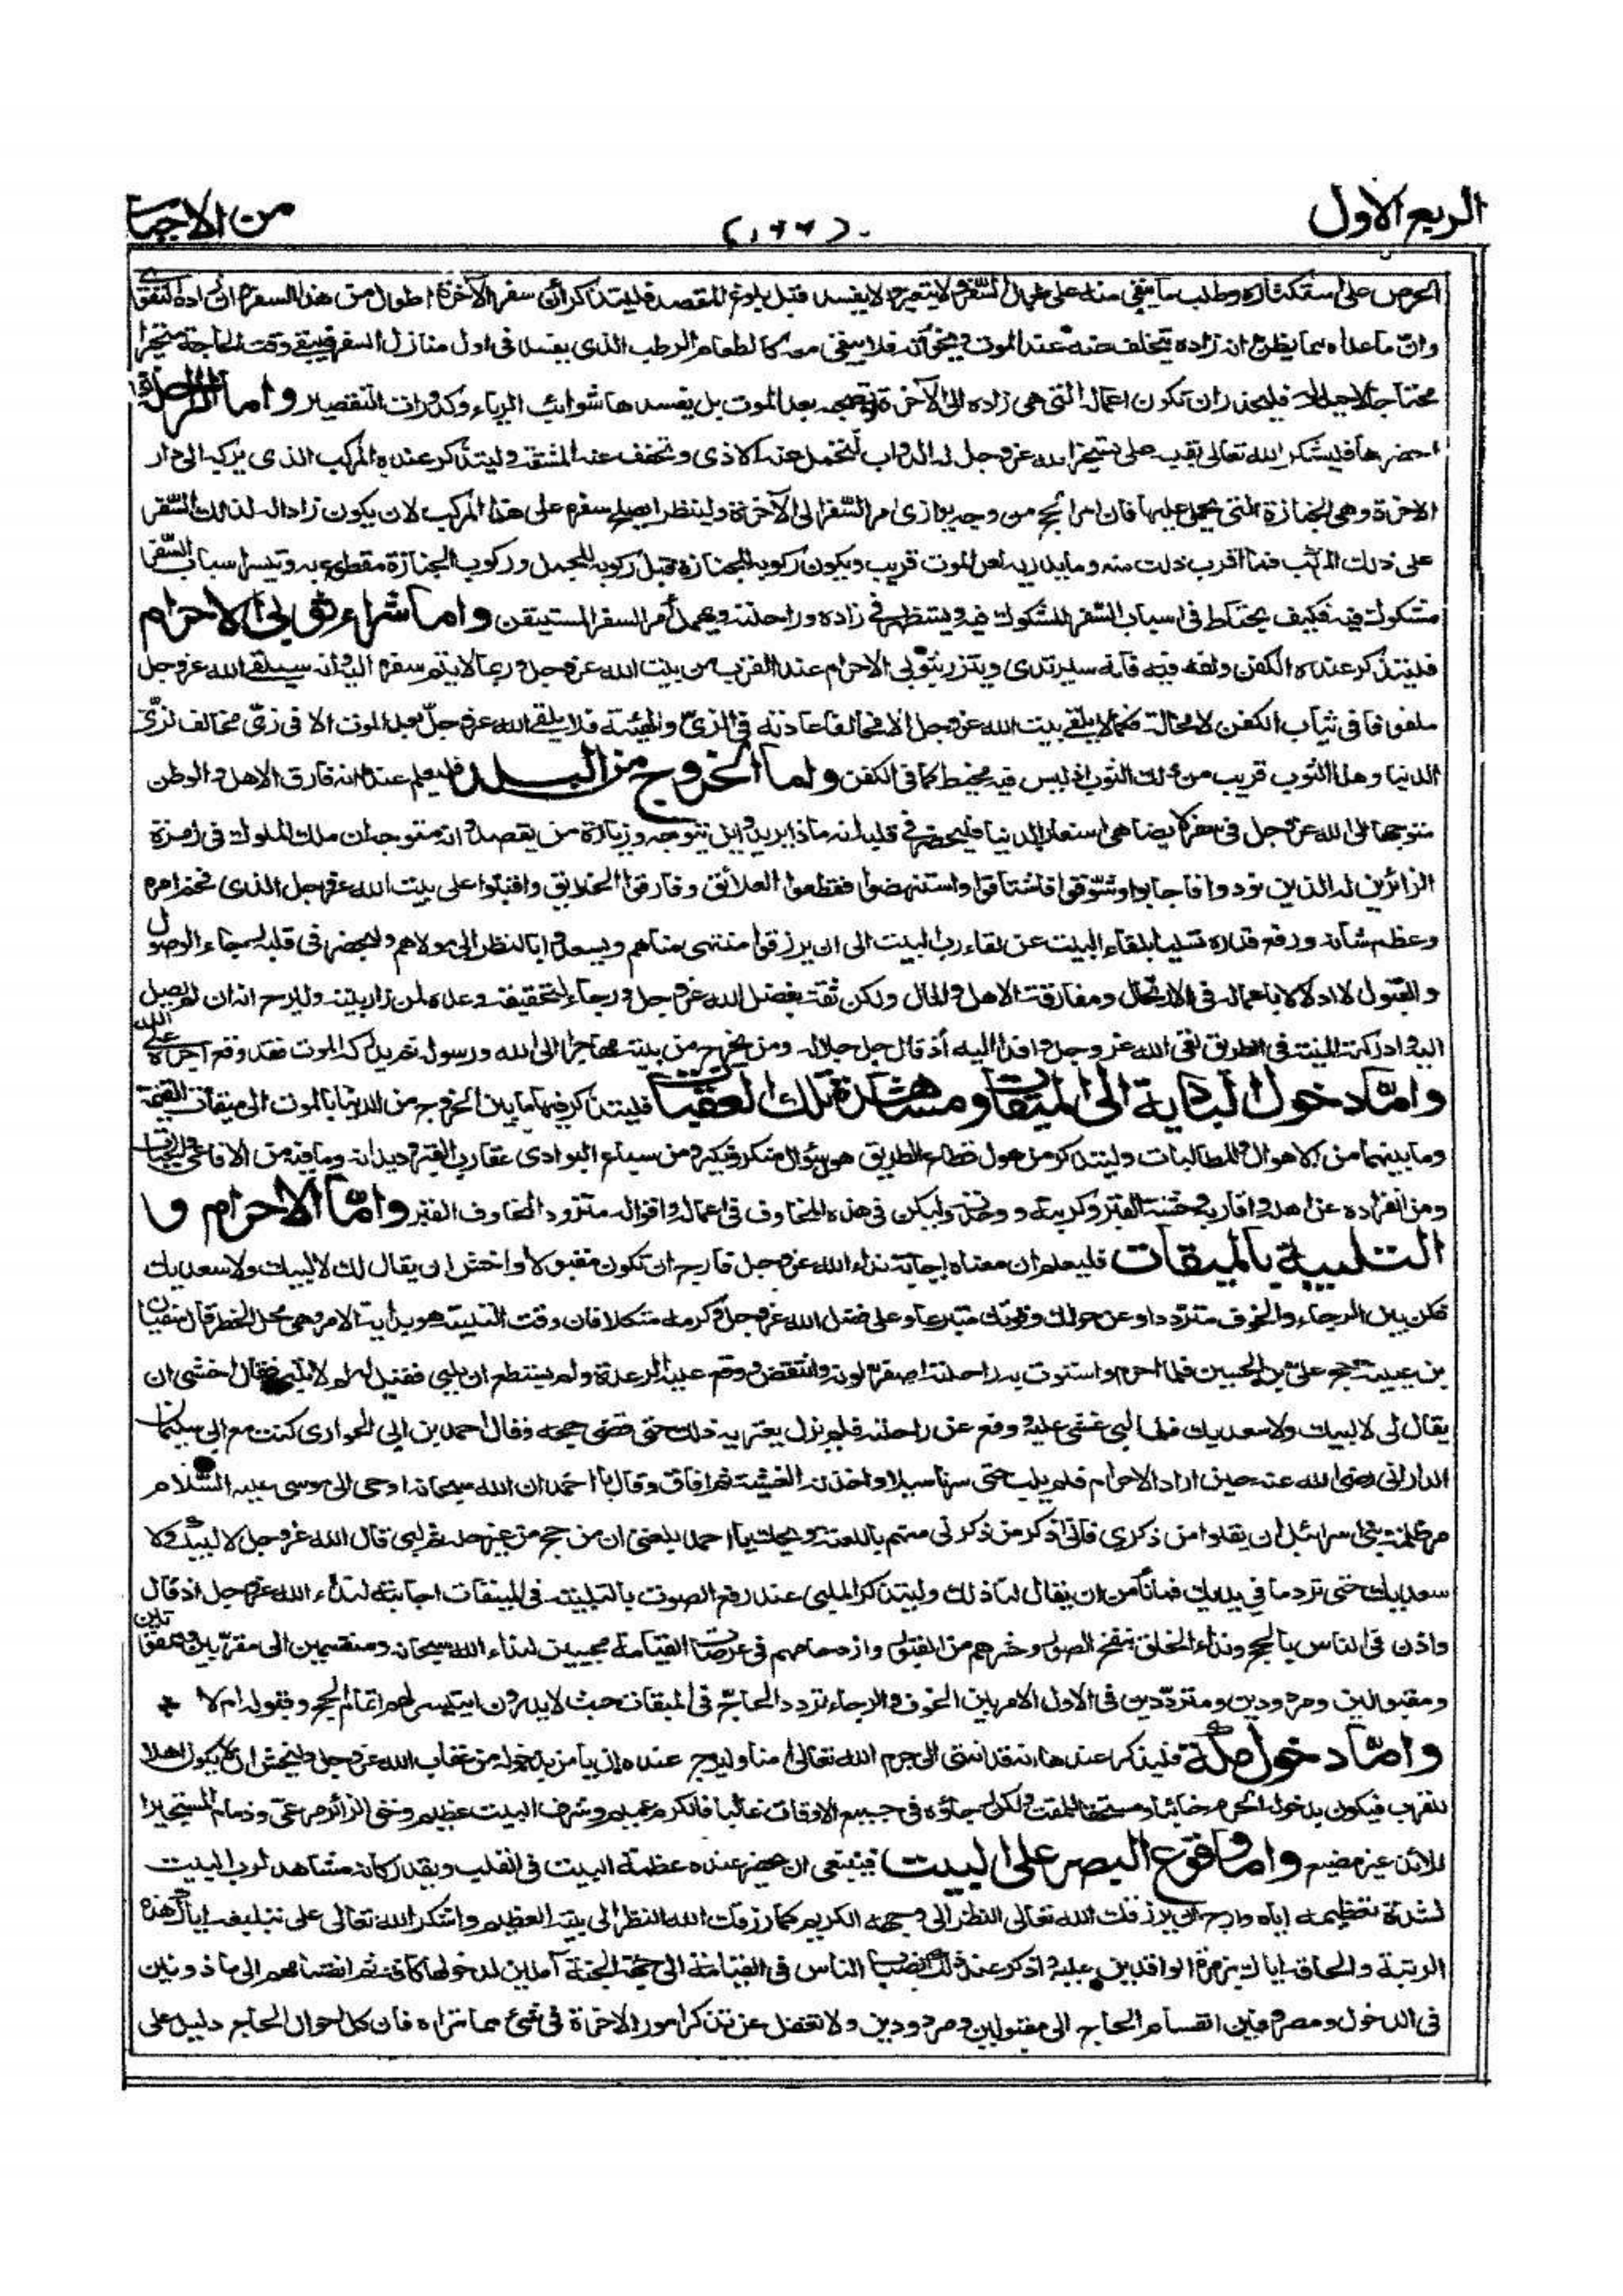 الربع الاول
من الاحياء
الحرص على استكثاره وطلب ما يبقى منه على طول السفر ولا يتغير ولا يفسد قبل بلوغ المقصد فليتذكر أن سفر الآخرة اطول من هذا السفر وان زاده التقوى
وان ما عداه مما يظن انه زاده يتخلف عنه عند الموت ويخونه فلا يبقى معه كالطعام الرطب الذى يفسد فى اول منازل السفر فيبقى وقت الحاجة متحيرا
محتاجا لاحيلة له فليحذر ان تكون اعماله التى هى زاده الى الآخرة لا تصحبه بعد الموت بل يفسدها شوائب الرياء وكدورات التقصير واما الراحلة اذا
احضرها فليشكر الله تعالى بقلبه على تسخير الله عز وجل له الدواب لتحمل عنه الاذى وتخفف عنه المشقة وليتذكر عنده المركب الذى يركبه الى دار
الآخرة وهى الجنازة التى يحمل عليها فان امر الحج من وجه يوازى امر السفر الى الآخرة ولينظر ايصلح سفره على هذا المركب لان يكون زادا له لذلك السفر
على ذلك المركب فما اقرب ذلك منه وما يدريه لعل الموت قريب ويكون ركوبه للجنازة قبل ركوبه للجمل وركوب الجنازة مقطوع به وتيسر اسباب السفر
مشكوك فيه فكيف يحتاط فى اسباب السفر المشكوك فيه ويستظهر فى زاده وراحلته ويهمل أمر السفر المستيقن واما شراء ثوبى الاحرام
فليتذكر عنده الكفن ولفه فيه فانه سيرتدى ويتزر بثوبى الاحرام عند القرب من بيت الله عز وجل وربما لا يتم سفره اليه وانه سيلقى الله عز وجل
ملفوفا فى ثياب الكفن لا محالة فكما لا يلقى بيت الله عز وجل الا مخالفا عادته فى الزى والهيئة فلا يلقى الله عز وجل بعد الموت الا فى زى مخالف لزى
الدنيا وهذا الثوب قريب من ذلك الثوب اذ ليس فيه مخيط كما فى الكفن واما الخروج من البلد فليعلم عنده انه فارق الاهل والوطن
متوجها الى الله عز وجل فى سفر لا يضاهى اسفار الدنيا فليحضر فى قلبه انه ماذا يريد واين يتوجه وزيارة من يقصد وانه متوجه الى ملك الملوك فى زمرة
الزائرين له الذين نودوا فاجابوا وشوقوا فاشتاقوا واستنهضوا فقطعوا العلائق وفارقوا الخلايق واقبلوا على بيت الله عز وجل الذى فخم امره
وعظم شأنه ورفع قدره تسليا بلقاء البيت عن لقاء رب البيت الى ان يرزقوا منتهى مناهم ويسعدوا بالنظر الى مولاهم وليحضر فى قلبه رجاء الوصول
والقبول لا ادلالا باعماله فى الارتحال ومفارقة الاهل والمال ولكن ثقة بفضل الله عز وجل ورجاء لتحقيقه وعده لمن زار بيته وليرج انه ان لم يصل
اليه وادركته المنية فى الطريق لقى الله عز وجل وافدا اليه أذ قال جل جلاله ومن يخرج من بيته مهاجرا الى الله ورسوله ثم يدركه الموت فقد وقع اجره على الله
واما دخول البادية الى الميقات ومشاهدة تلك العقبات فليتذكر فيها ما بين الخروج من الدنيا بالموت الى ميقات القيمة
وما بينهما من الاهوال والمطالبات وليتذكر من هول قطاع الطريق هول سؤال منكر ونكير ومن سباع البوادى عقارب القبر وديدانه وما فيه من الافاعى والحيات
ومن انفراده عن اهله واقاربه وحشة القبر وكربته ووحدته وليكن فى هذه المخاوف فى اعماله واقواله متزودا لمخاوف القبر واما الاحرام و
التلبية بالميقات فليعلم ان معناه اجابة نداء الله عز وجل فارج ان تكون مقبولا واخش ان يقال لك لا لبيك ولا سعديك
فكن بين الرجاء والخوف مترددا وعن حولك وقوتك متبرءا وعلى فضل الله عز وجل وكرمه متكلا فان وقت التلبية هو بداية الامر وهى محل الخطر قال سفيان
بن عيينة حج على بن الحسين فلما احرم واستوت به راحلته اصفر لونه وانتفض ووقع عليه الرعدة ولم يستطع ان يلبى فقيل له لم لا تلبى فقال اخشى ان
يقال لى لا لبيك ولا سعديك فلما لبى غشى عليه ووقع عن راحلته فلم يزل يعتريه ذلك حتى قضى حجه وقال احمد بن ابى الحوارى كنت مع ابى سليمان
الدارانى رضى الله عنه حين اراد الاحرام فلم يلب حتى سرنا ميلا واخذته الغشية ثم افاق وقال يا احمد ان الله سبحانه اوحى الى موسى عليه السلام
مر ظلمة بنى اسرائيل ان يقلوا من ذكرى فانى اذكر من ذكرنى منهم باللعنة ويحك يا احمد بلغنى ان من حج من غير حله ثم لبى قال الله عز وجل لا لبيك ولا
سعديك حتى ترد ما فى يديك فما نأمن ان يقال لنا ذلك وليتذكر الملبى عند رفع الصوت بالتلبية فى الميقات اجابته لنداء الله عز وجل اذ قال
واذن فى الناس بالحج ونداء الخلق بنفخ الصور وحشرهم من القبور وازدحامهم فى عرصات القيامة مجيبين لنداء الله سبحانه ومنقسمين الى مقربين وممقوتين
ومقبولين ومردودين ومترددين فى الاول الامر بين الخوف والرجاء تردد الحاج فى الميقات حيث لا يدرون ايتيسر لهم اتمام الحج وقبوله ام لا *
واما دخول مكة فليذكر عندها انه قد انتهى الى حرم الله تعالى امنا وليرج عنده ان يأمن بدخوله من عقاب الله عز وجل وليخش ان لا يكون اهلا
للقرب فيكون بدخوله الحرم خائبا ومستحقا للمقت وليكن رجاؤه فى جميع الاوقات غالبا فالكرم عميم وشرف البيت عظيم وحق الزائر مرعى وذمام المستجير
اللائذ غير مضيع واما وقوع البصر على البيت فينبغى ان يحضر عنده عظمة البيت فى القلب ويقدر كانه مشاهد لرب البيت
لشدة تعظيمه اياه وارج ان يرزقك الله تعالى النظر الى وجهه الكريم كما رزقك الله النظر الى بيته العظيم واشكر الله تعالى على تبليغه اياك هذه
الرتبة والحاقه اياك بزمرة الوافدين عليه واذكر عند ذلك انصباب الناس فى القيامة الى جهة الجنة آملين لدخولها كافة ثم انقسامهم الى ماذونين
فى الدخول ومصروفين انقسام الحاج الى مقبولين ومردودين ولا تغفل عن تذكر امور الاخرة فى شئ مما تراه فان كل احوال الحاج دليل على